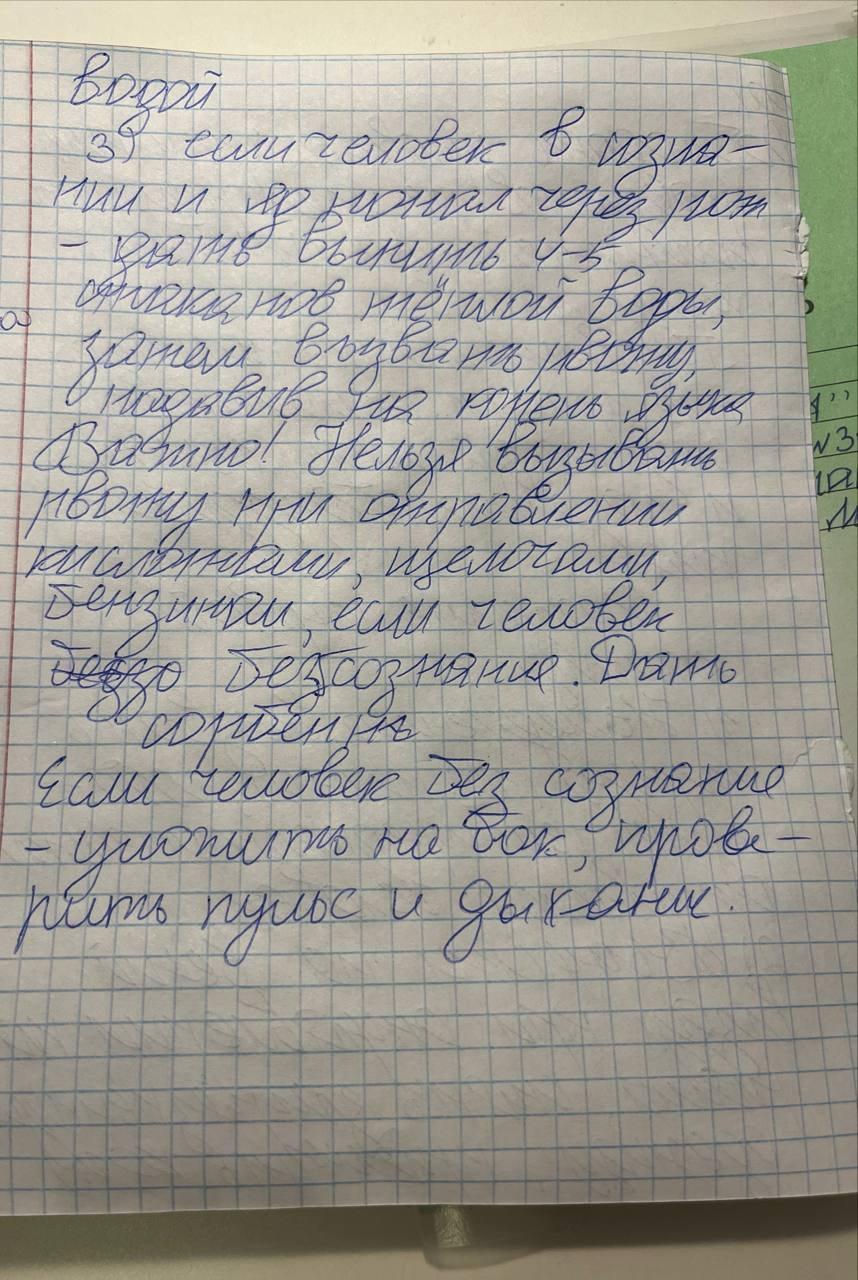 водой
3) если человек в созна-
нии и яд попал через рот
- дать выпить 4-5
стаканов тёплой воды,
затем вызвать рвоту,
надавив на корень языка
Важно! Нельзя вызывать
рвоту при отравлении
кислотами, щелочами,
бензином, если человек
без сознание. Дать
сорбенты
Если человек без сознание
- уложить на бок, прове-
рить пульс и дыхание.